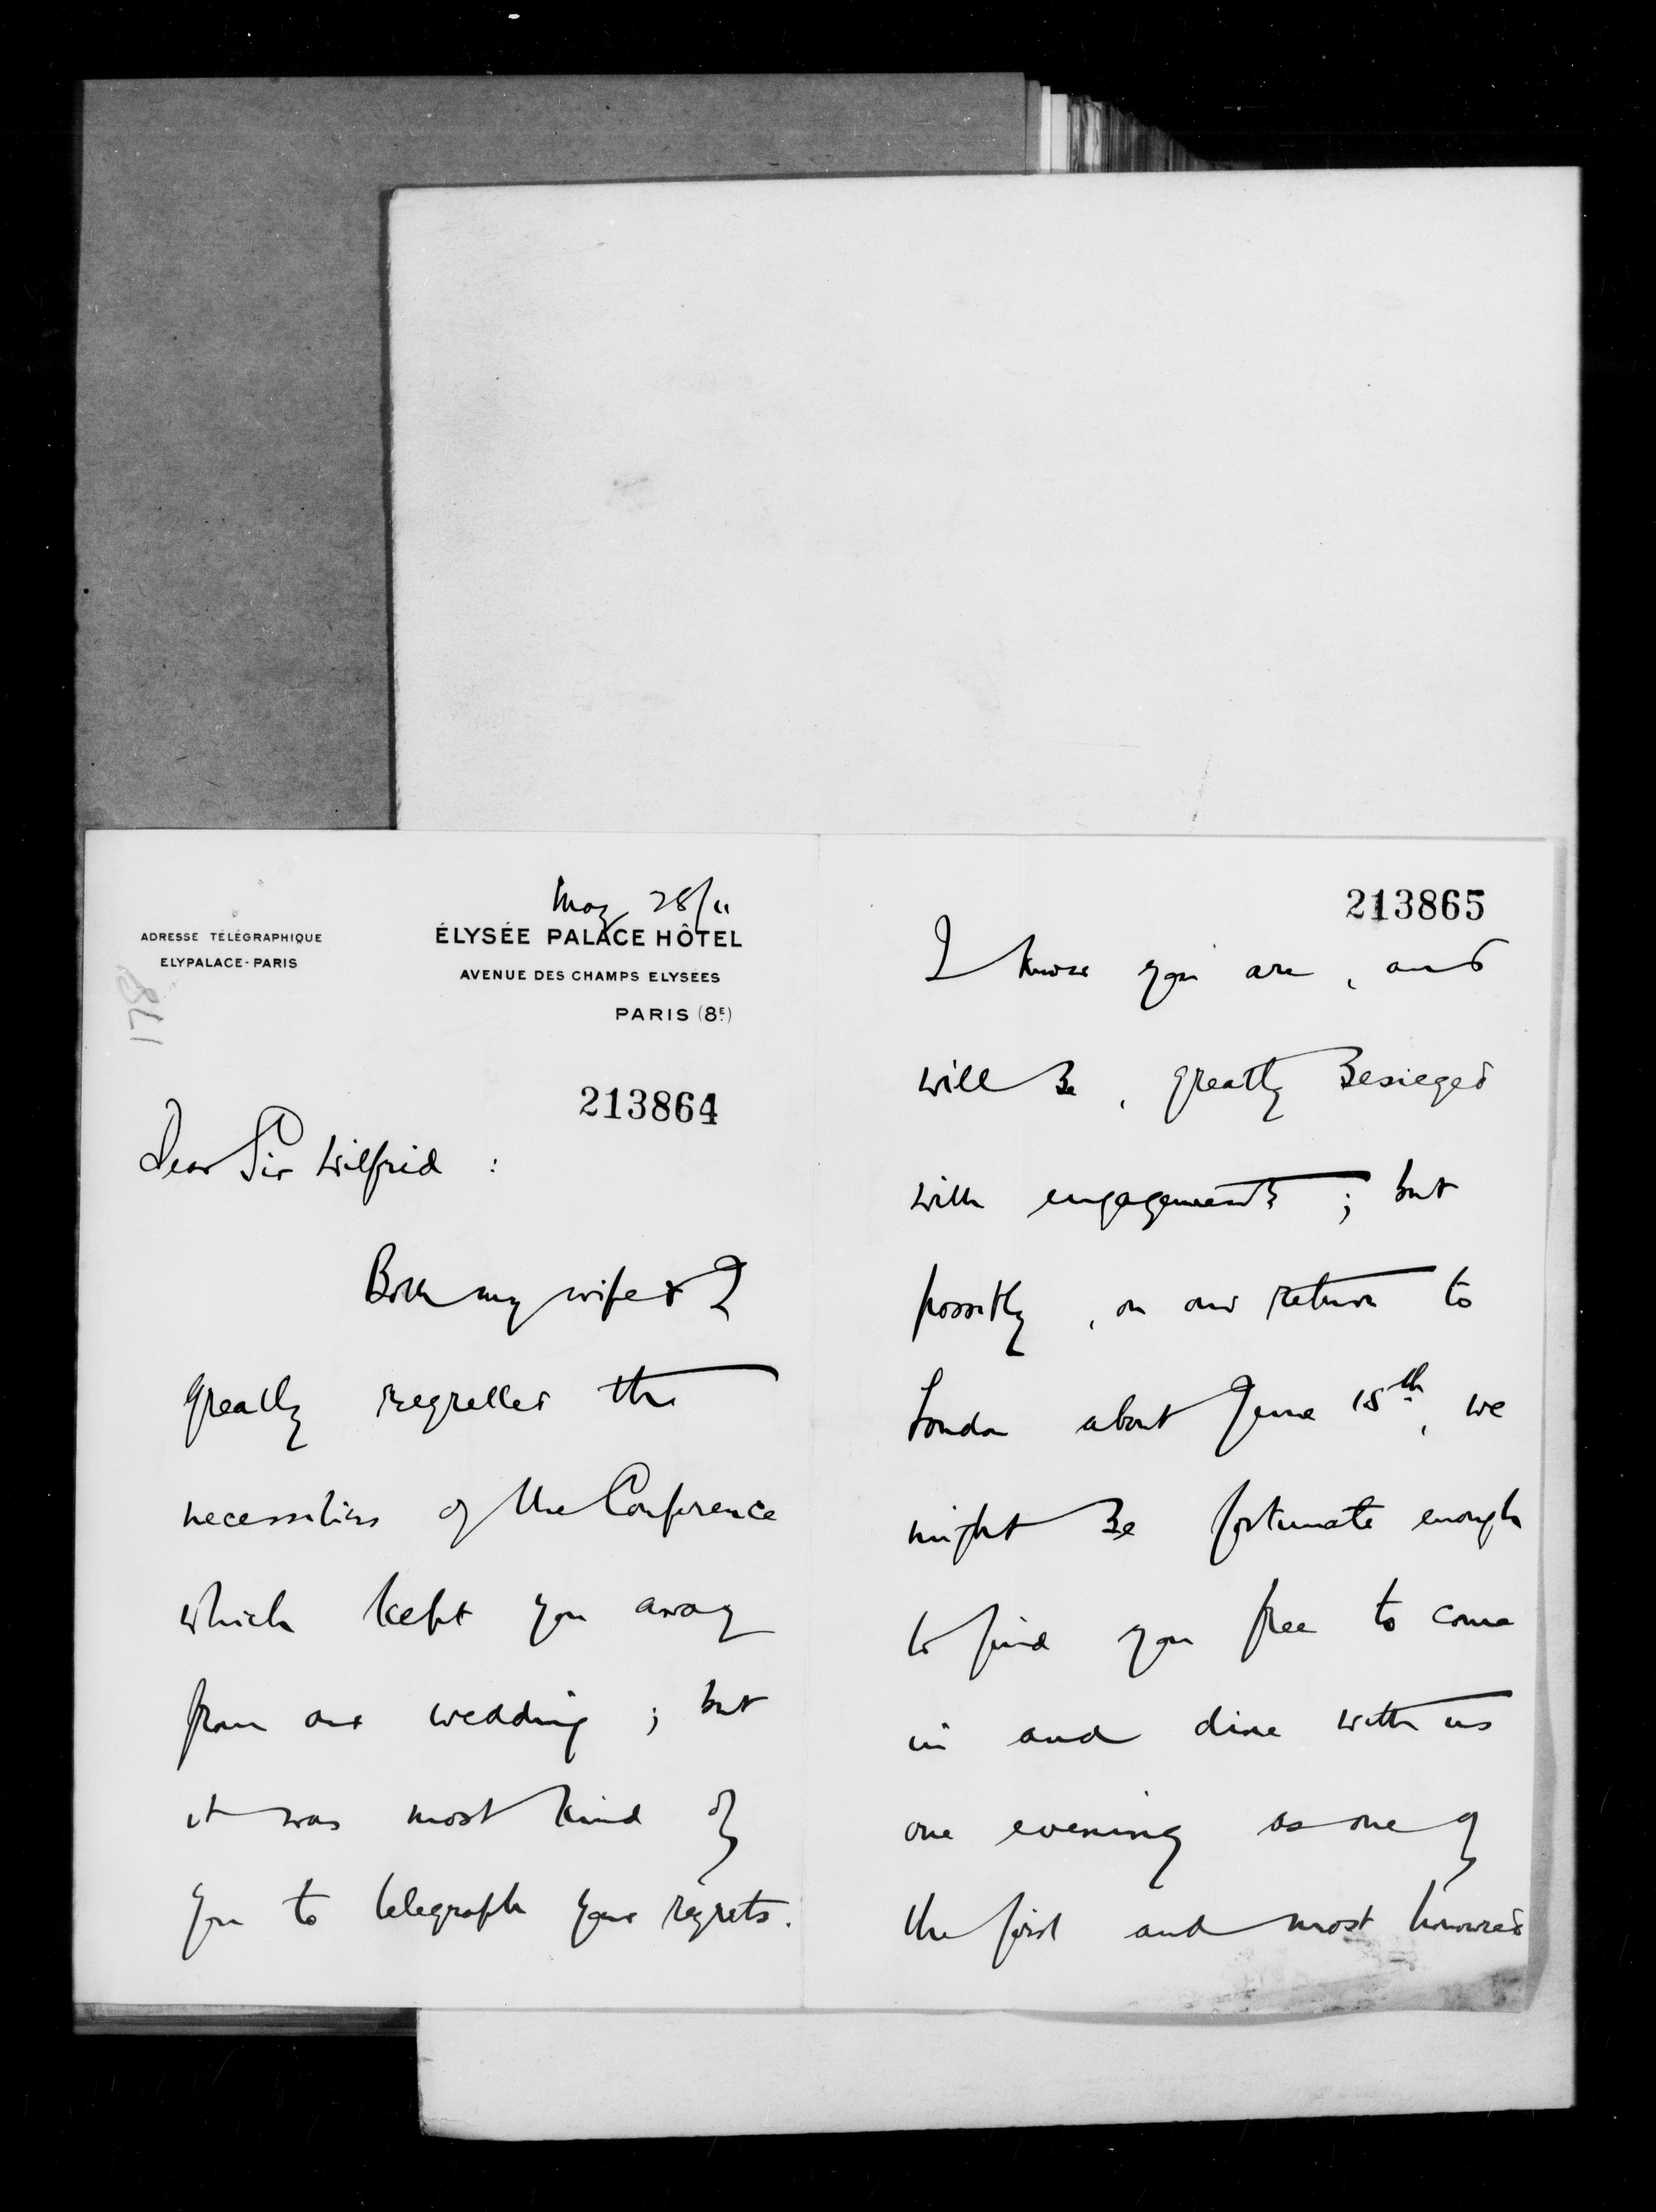 May 28/11
ADRESSE TÉLÉGRAPHIQUE
ELYPALACE-PARIS
ÉLYSÉE PALACE HÔTEL
AVENUE DES CHAMPS ELYSÉES
PARIS (8E)
178
213864
Dear Sir Wilfrid :
Both my wife & I
greatly regretted the
necessities of the Conference
which kept you away
from our wedding ; but
it was most kind of
you to telegraph your regrets.
213865
I know you are, and
will be, greatly besieged
with engagements ; but
possibly, on our return to
London about June 15th, we
might be fortunate enough
to find you free to come
in and dine with us
one evening as one of
the first and most honoured